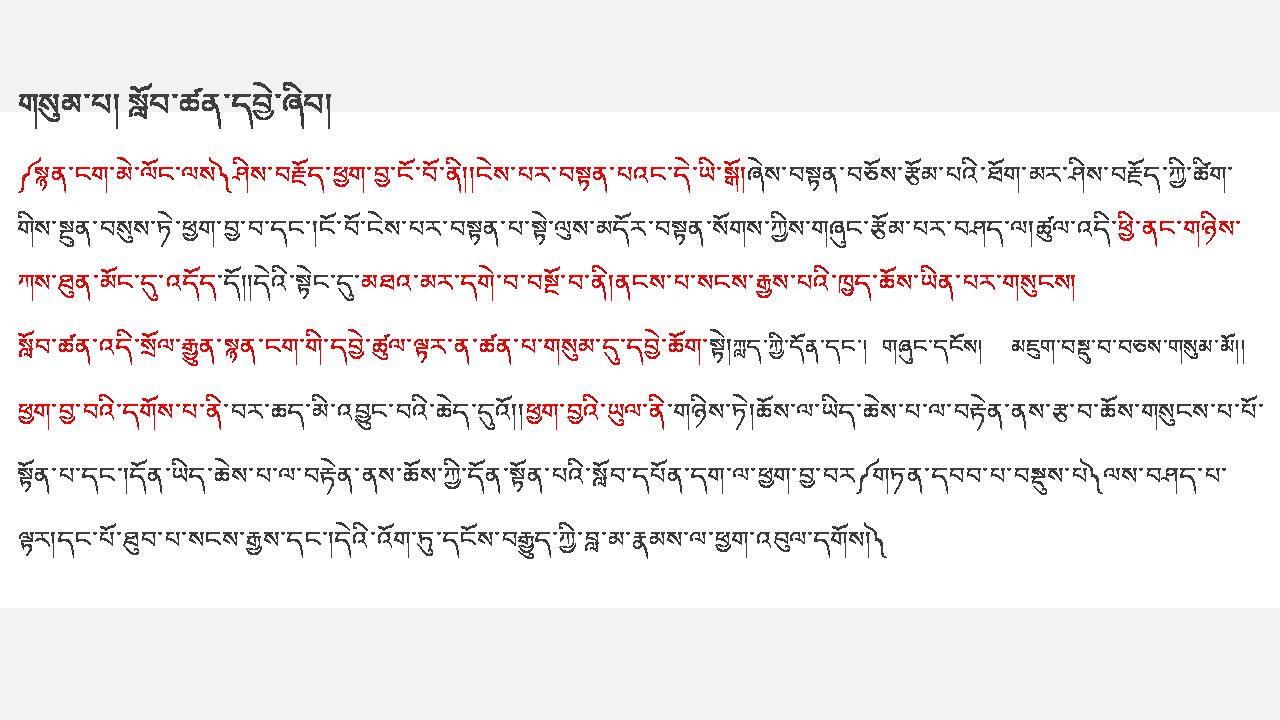 གསུམ་པ། སློབ་ཚན་དབྱེ་ཞིབ།
༼སྙན་ངག་མེ་ལོང་ལས༽ཤིས་བརྗོད་ཕྱག་བྱ་ངོ་བོ་ནི།།ངེས་པར་བསྟན་པའང་དེ་ཡི་སྒོ།ཞེས་བསྟན་བཅོས་རྩོམ་པའི་ཐོག་མར་ཤིས་བརྗོད་ཀྱི་ཚིག་
གིས་སྔུན་བསུས་ཏེ་ཕྱག་བྱ་བ་དང་།ངོ་བོ་ངེས་པར་བསྟན་པ་སྟེ་ལུས་མདོར་བསྟན་སོགས་ཀྱིས་གཞུང་རྩོམ་པར་བཤད་ལ།ཚུལ་འདི་ཕྱི་ནང་གཉིས་
ཀས་ཐུན་མོང་དུ་འདོད་དོ།།དེའི་སྟེང་དུ་མཐའ་མར་དགེ་བ་བསྔོ་བ་ནི།ནངས་པ་སངས་རྒྱས་པའི་ཁྱད་ཆོས་ཡིན་པར་གསུངས།
སློབ་ཚན་འདི་སྲོལ་རྒྱུན་སྙན་ངག་གི་དབྱེ་ཚུལ་ལྟར་ན་ཚན་པ་གསུམ་དུ་དབྱེ་ཆོག་སྟེ།ཀླད་ཀྱི་དོན་དང་། གཞུང་དངོས། མཇུག་བསྡུ་བ་བཅས་གསུམ་མོ།།
ཕྱག་བྱ་བའི་དགོས་པ་ནི་བར་ཆད་མི་འབྱུང་བའི་ཆེད་དུའོ།།ཕྱག་བྱའི་ཡུལ་ནི་གཉིས་ཏེ།ཆོས་ལ་ཡིད་ཆེས་པ་ལ་བརྟེན་ནས་རྩ་བ་ཆོས་གསུངས་པ་པོ་
སྟོན་པ་དང་།དོན་ཡིད་ཆེས་པ་ལ་བརྟེན་ནས་ཆོས་ཀྱི་དོན་སྟོན་པའི་སློབ་དཔོན་དག་ལ་ཕྱག་བྱ་བར༼གཏན་དབབ་པ་བསྡུས་པ༽ལས་བཤད་པ་
ལྟར།དང་པོ་ཐུབ་པ་སངས་རྒྱས་དང་།དེའི་འོག་ཏུ་དངོས་བརྒྱུད་ཀྱི་བླ་མ་རྣམས་ལ་ཕྱག་འབུལ་དགོས།༽